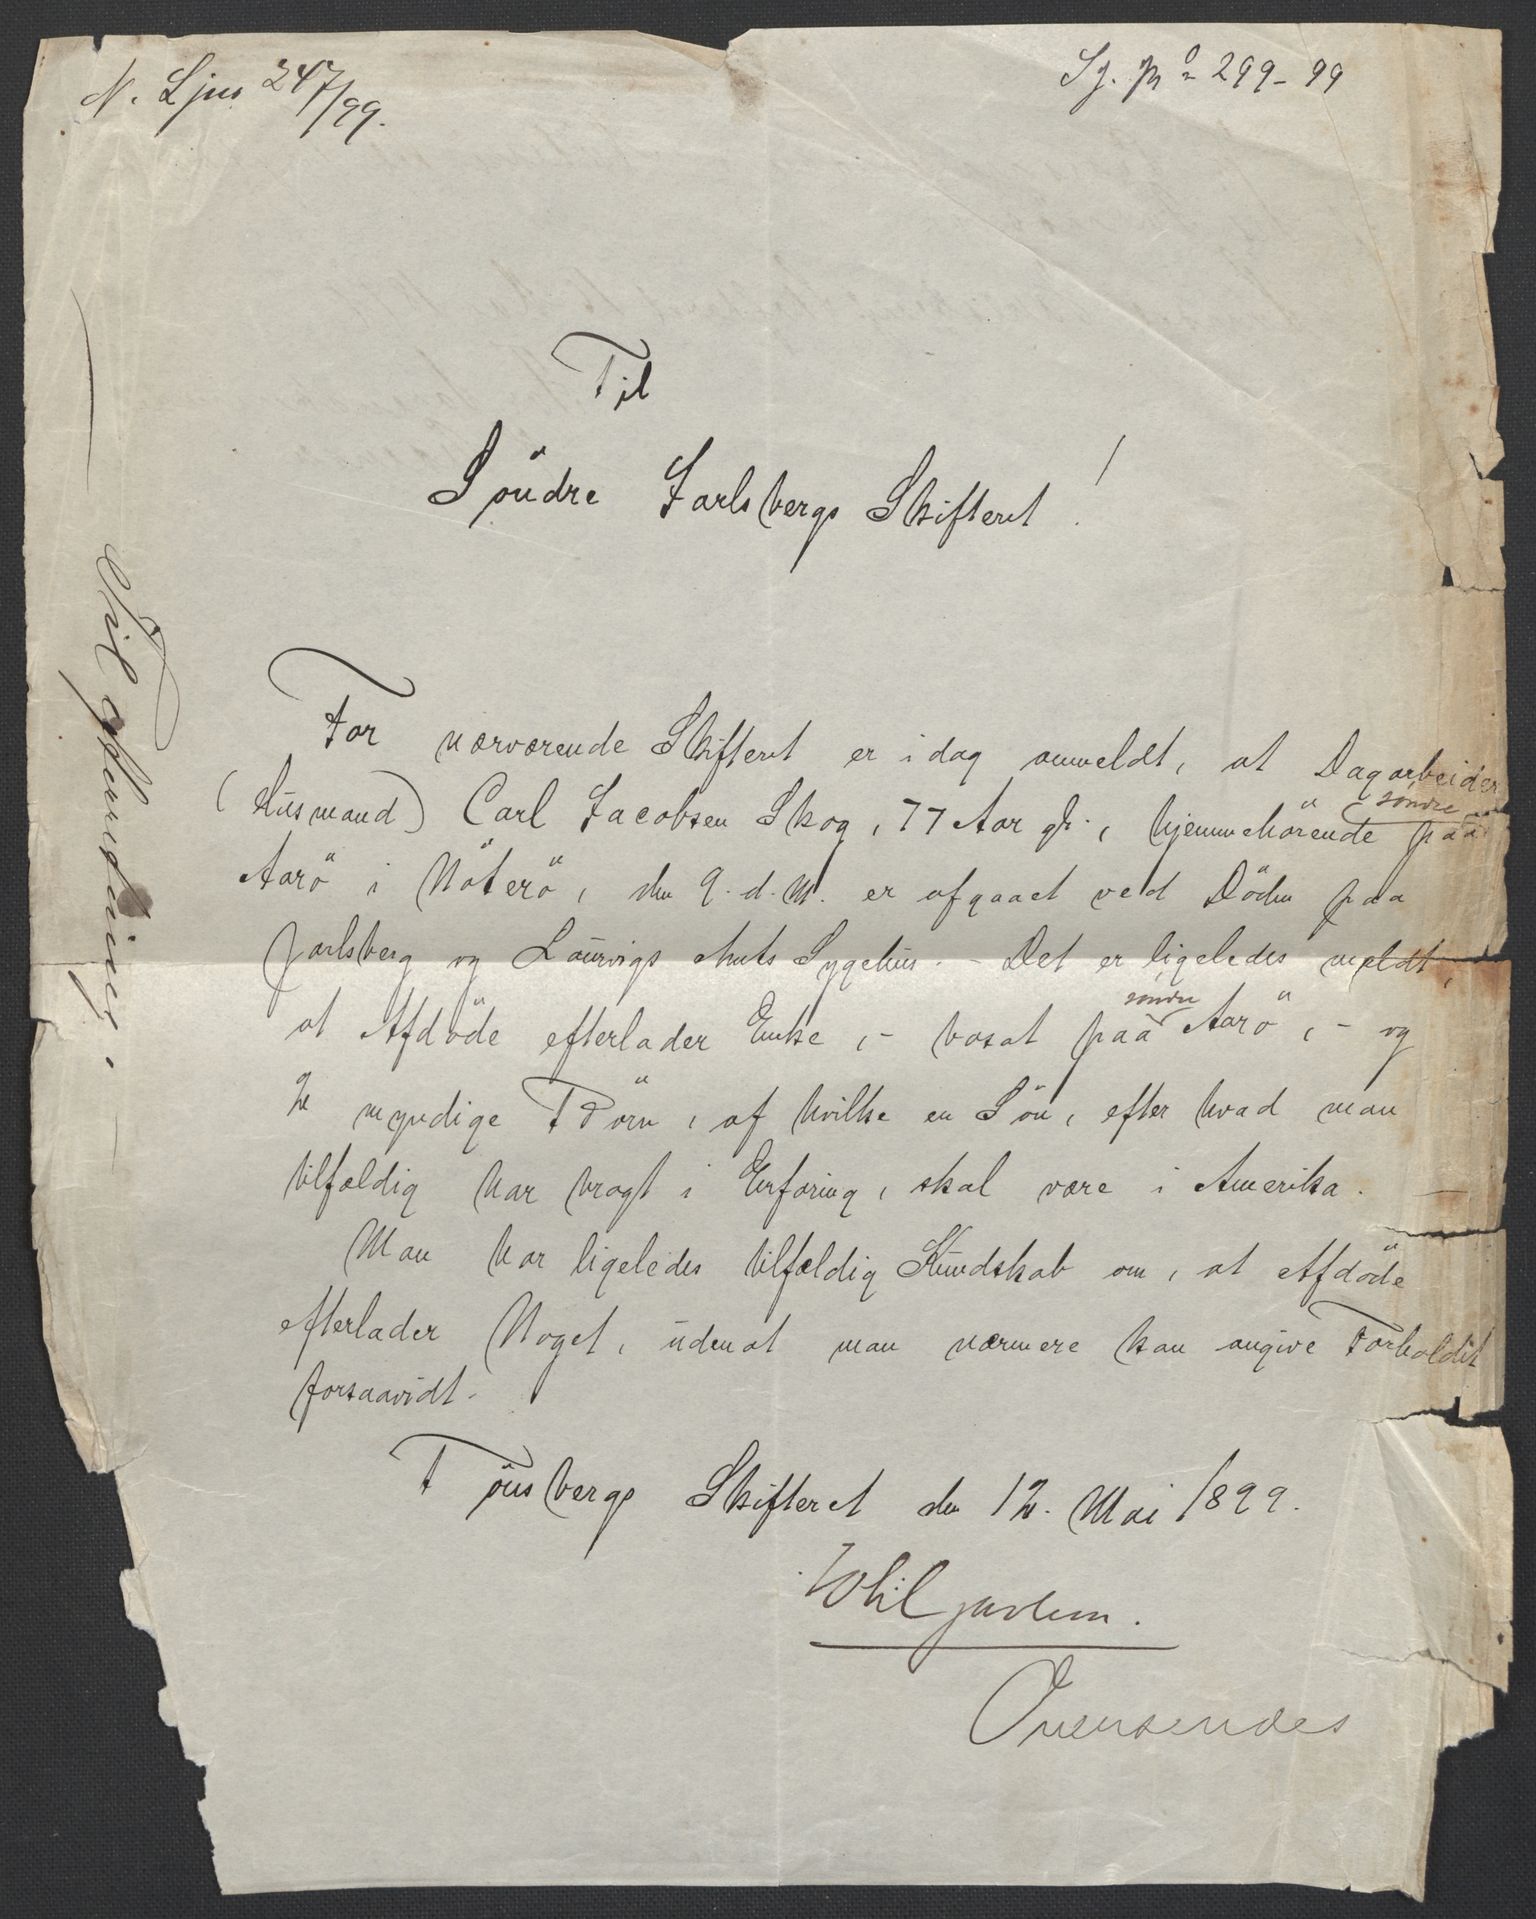 N. L Jus 247/99.
Sj. No 299-99
Til
Söndre Jarlsbergs Skifteret!
For nærværende Skifteret er idag anmeldt, at Dagarbeider
(Husmand) Carl Jacobsen Skog, 77 Aar gl., hjemmehörende paa söndre
Aarö i Nöterö, den 9. d. M. er afgaaet ved Döden paa
Jarlsberg og Laurvigs Amts Sygehus. - Det er ligeledes meldt,
at Afdöde efterlader Enke, - bosat paa söndre Aarö, - og
2 myndige Börn, af hvilke en Sön, efter hvad man
tilfældig har bragt i Erfaring, skal være i Amerika.
Man har ligeledes tilfældig Kundskab om, at Afdöde
efterlader Noget, uden at man nærmere kan angive Forholdet
forsaavidt.
Tönsbergs Skifteret den 12. Mai 1899.
Oversendes